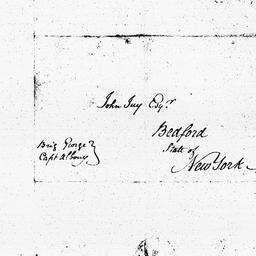 John Jay Esqr
Bedford
State of
New York
Brig George
Capt Albony